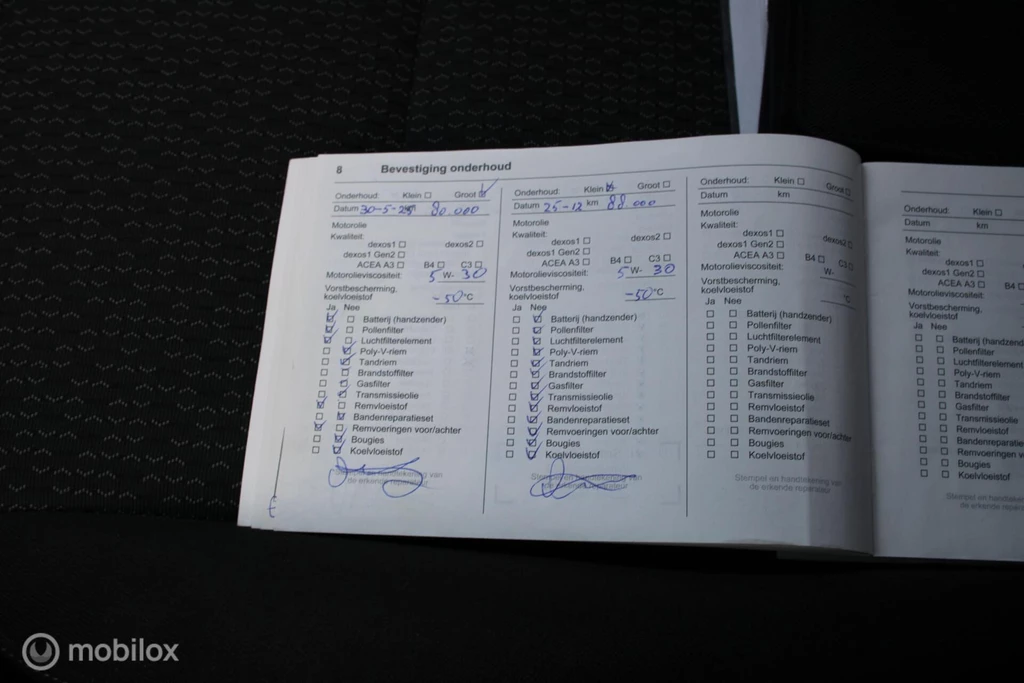 8 Bevestiging onderhoud
Onderhoud: Klein Groot
Datum 30-5- 80.000
Motorolie
Kwaliteit:
dexos1 dexos2
dexos1 Gen2
ACEA A3 B4 C3
Motorolieviscositeit: 5 W- 30
Vorstbescherming,
koelvloeistof -50°C
Ja Nee
Batterij (handzender)
Pollenfilter
Luchtfilterelement
Poly-V-riem
Tandriem
Brandstoffilter
Gasfilter
Transmissieolie
Remvloeistof
Bandenreparatieset
Remvoeringen voor/achter
Bougies
Koelvloeistof
Stempel en handtekening van
de erkende reparateur
Onderhoud: Klein Groot
Datum 25-12 km 88 000
Motorolie
Kwaliteit:
dexos1 dexos2
dexos1 Gen2
ACEA A3 B4 C3
Motorolieviscositeit: 5 W- 30
Vorstbescherming,
koelvloeistof -50°C
Ja Nee
Batterij (handzender)
Pollenfilter
Luchtfilterelement
Poly-V-riem
Tandriem
Brandstoffilter
Gasfilter
Transmissieolie
Remvloeistof
Bandenreparatieset
Remvoeringen voor/achter
Bougies
Koelvloeistof
Stempel en handtekening van
de erkende reparateur
Onderhoud: Klein Groot
Datum km
Motorolie
Kwaliteit:
dexos1 dexos2
dexos1 Gen2
ACEA A3 B4 C3
Motorolieviscositeit: W-
Vorstbescherming,
koelvloeistof °C
Ja Nee
Batterij (handzender)
Pollenfilter
Luchtfilterelement
Poly-V-riem
Tandriem
Brandstoffilter
Gasfilter
Transmissieolie
Remvloeistof
Bandenreparatieset
Remvoeringen voor/achter
Bougies
Koelvloeistof
Stempel en handtekening van
de erkende reparateur
Onderhoud: Klein
Datum km
Motorolie
Kwaliteit:
dexos1
dexos1 Gen2
ACEA A3 B4
Motorolieviscositeit:
Vorstbescherming,
koelvloeistof
Ja Nee
Batterij (handzend
Pollenfilter
Luchtfilterelement
Poly-V-riem
Tandriem
Brandstoffilter
Gasfilter
Transmissieolie
Remvloeistof
Bandenreparaties
Remvoeringen voo
Bougies
Koelvloeistof
Stempel en handteke
de erkende repara
mobilox